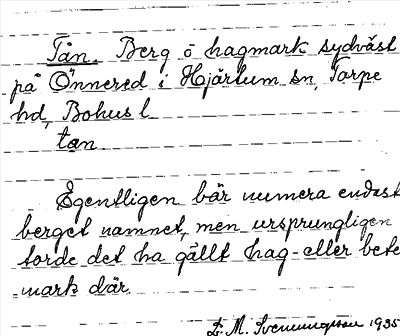 Tån. Berg o hagmark sydväst
på Önnered i Hjärtum sn, Torpe
hd, Bohus l.
tan
Egentligen bär numera endast
berget namnet, men ursprungligen
torde det ha gällt hag- eller bete
mark där.
E. M. Svenungsson 1935